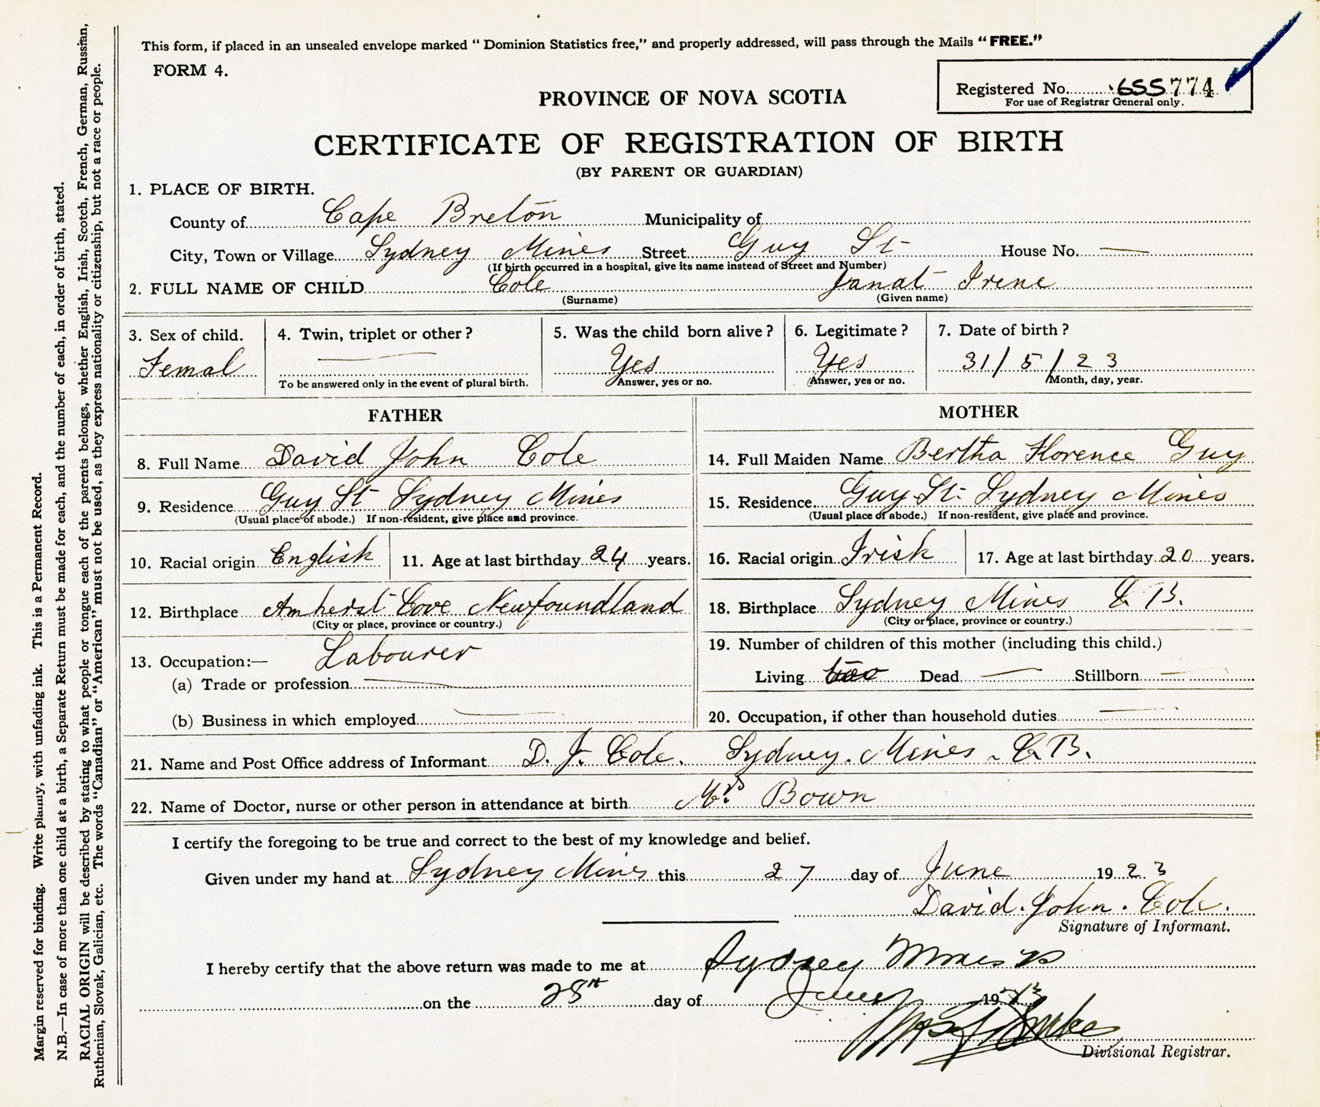 This form, if placed in an unsealed envelope marked “ Dominion Statistics free,” and properly addressed, will pass through the Mails “ FREE.”
FORM 4.
Registered No. 655 774
For use of Registrar General only.
PROVINCE OF NOVA SCOTIA
CERTIFICATE OF REGISTRATION OF BIRTH
(BY PARENT OR GUARDIAN)
1. PLACE OF BIRTH.
County of Cape Breton Municipality of
City, Town or Village Sydney Mines Street Guy St House No. —
(If birth occurred in a hospital, give its name instead of Street and Number)
2. FULL NAME OF CHILD Cole Janat Irene
(Surname) (Given name)
3. Sex of child. 4. Twin, triplet or other? 5. Was the child born alive? 6. Legitimate? 7. Date of birth?
Femal — Yes Yes 31/5/23
To be answered only in the event of plural birth. Answer, yes or no. Answer, yes or no. Month, day, year.
FATHER MOTHER
8. Full Name David John Cole
14. Full Maiden Name Bertha Florence Guy
9. Residence Guy St Sydney Mines
(Usual place of abode.) If non-resident, give place and province.
15. Residence Guy St. Sydney Mines
(Usual place of abode.) If non-resident, give place and province.
10. Racial origin English 11. Age at last birthday 24 years.
16. Racial origin Irish 17. Age at last birthday 20 years.
12. Birthplace Amherst Cove Newfoundland
(City or place, province or country.)
18. Birthplace Sydney Mines C B.
(City or place, province or country.)
13. Occupation:— Labourer
(a) Trade or profession —
(b) Business in which employed —
19. Number of children of this mother (including this child.)
Living two Dead — Stillborn —
20. Occupation, if other than household duties —
21. Name and Post Office address of Informant D. J. Cole. Sydney. Mines. C.B.
22. Name of Doctor, nurse or other person in attendance at birth Mrs Bown
I certify the foregoing to be true and correct to the best of my knowledge and belief.
Given under my hand at Sydney Mines this 27 day of June 1923
David. John. Cole.
Signature of Informant.
I hereby certify that the above return was made to me at Sydney Mines
on the 28th day of June 19
Divisional Registrar.
Margin reserved for binding. Write plainly, with unfading ink. This is a Permanent Record.
N.B.—In case of more than one child at a birth, a Separate Return must be made for each, and the number of each, in order of birth, stated.
RACIAL ORIGIN will be described by stating to what people or tongue each of the parents belongs, whether English, Irish, Scotch, French, German, Russian,
Ruthenian, Slovak, Galician, etc. The words “Canadian” or “American” must not be used, as they express nationality or citizenship, but not a race or people.